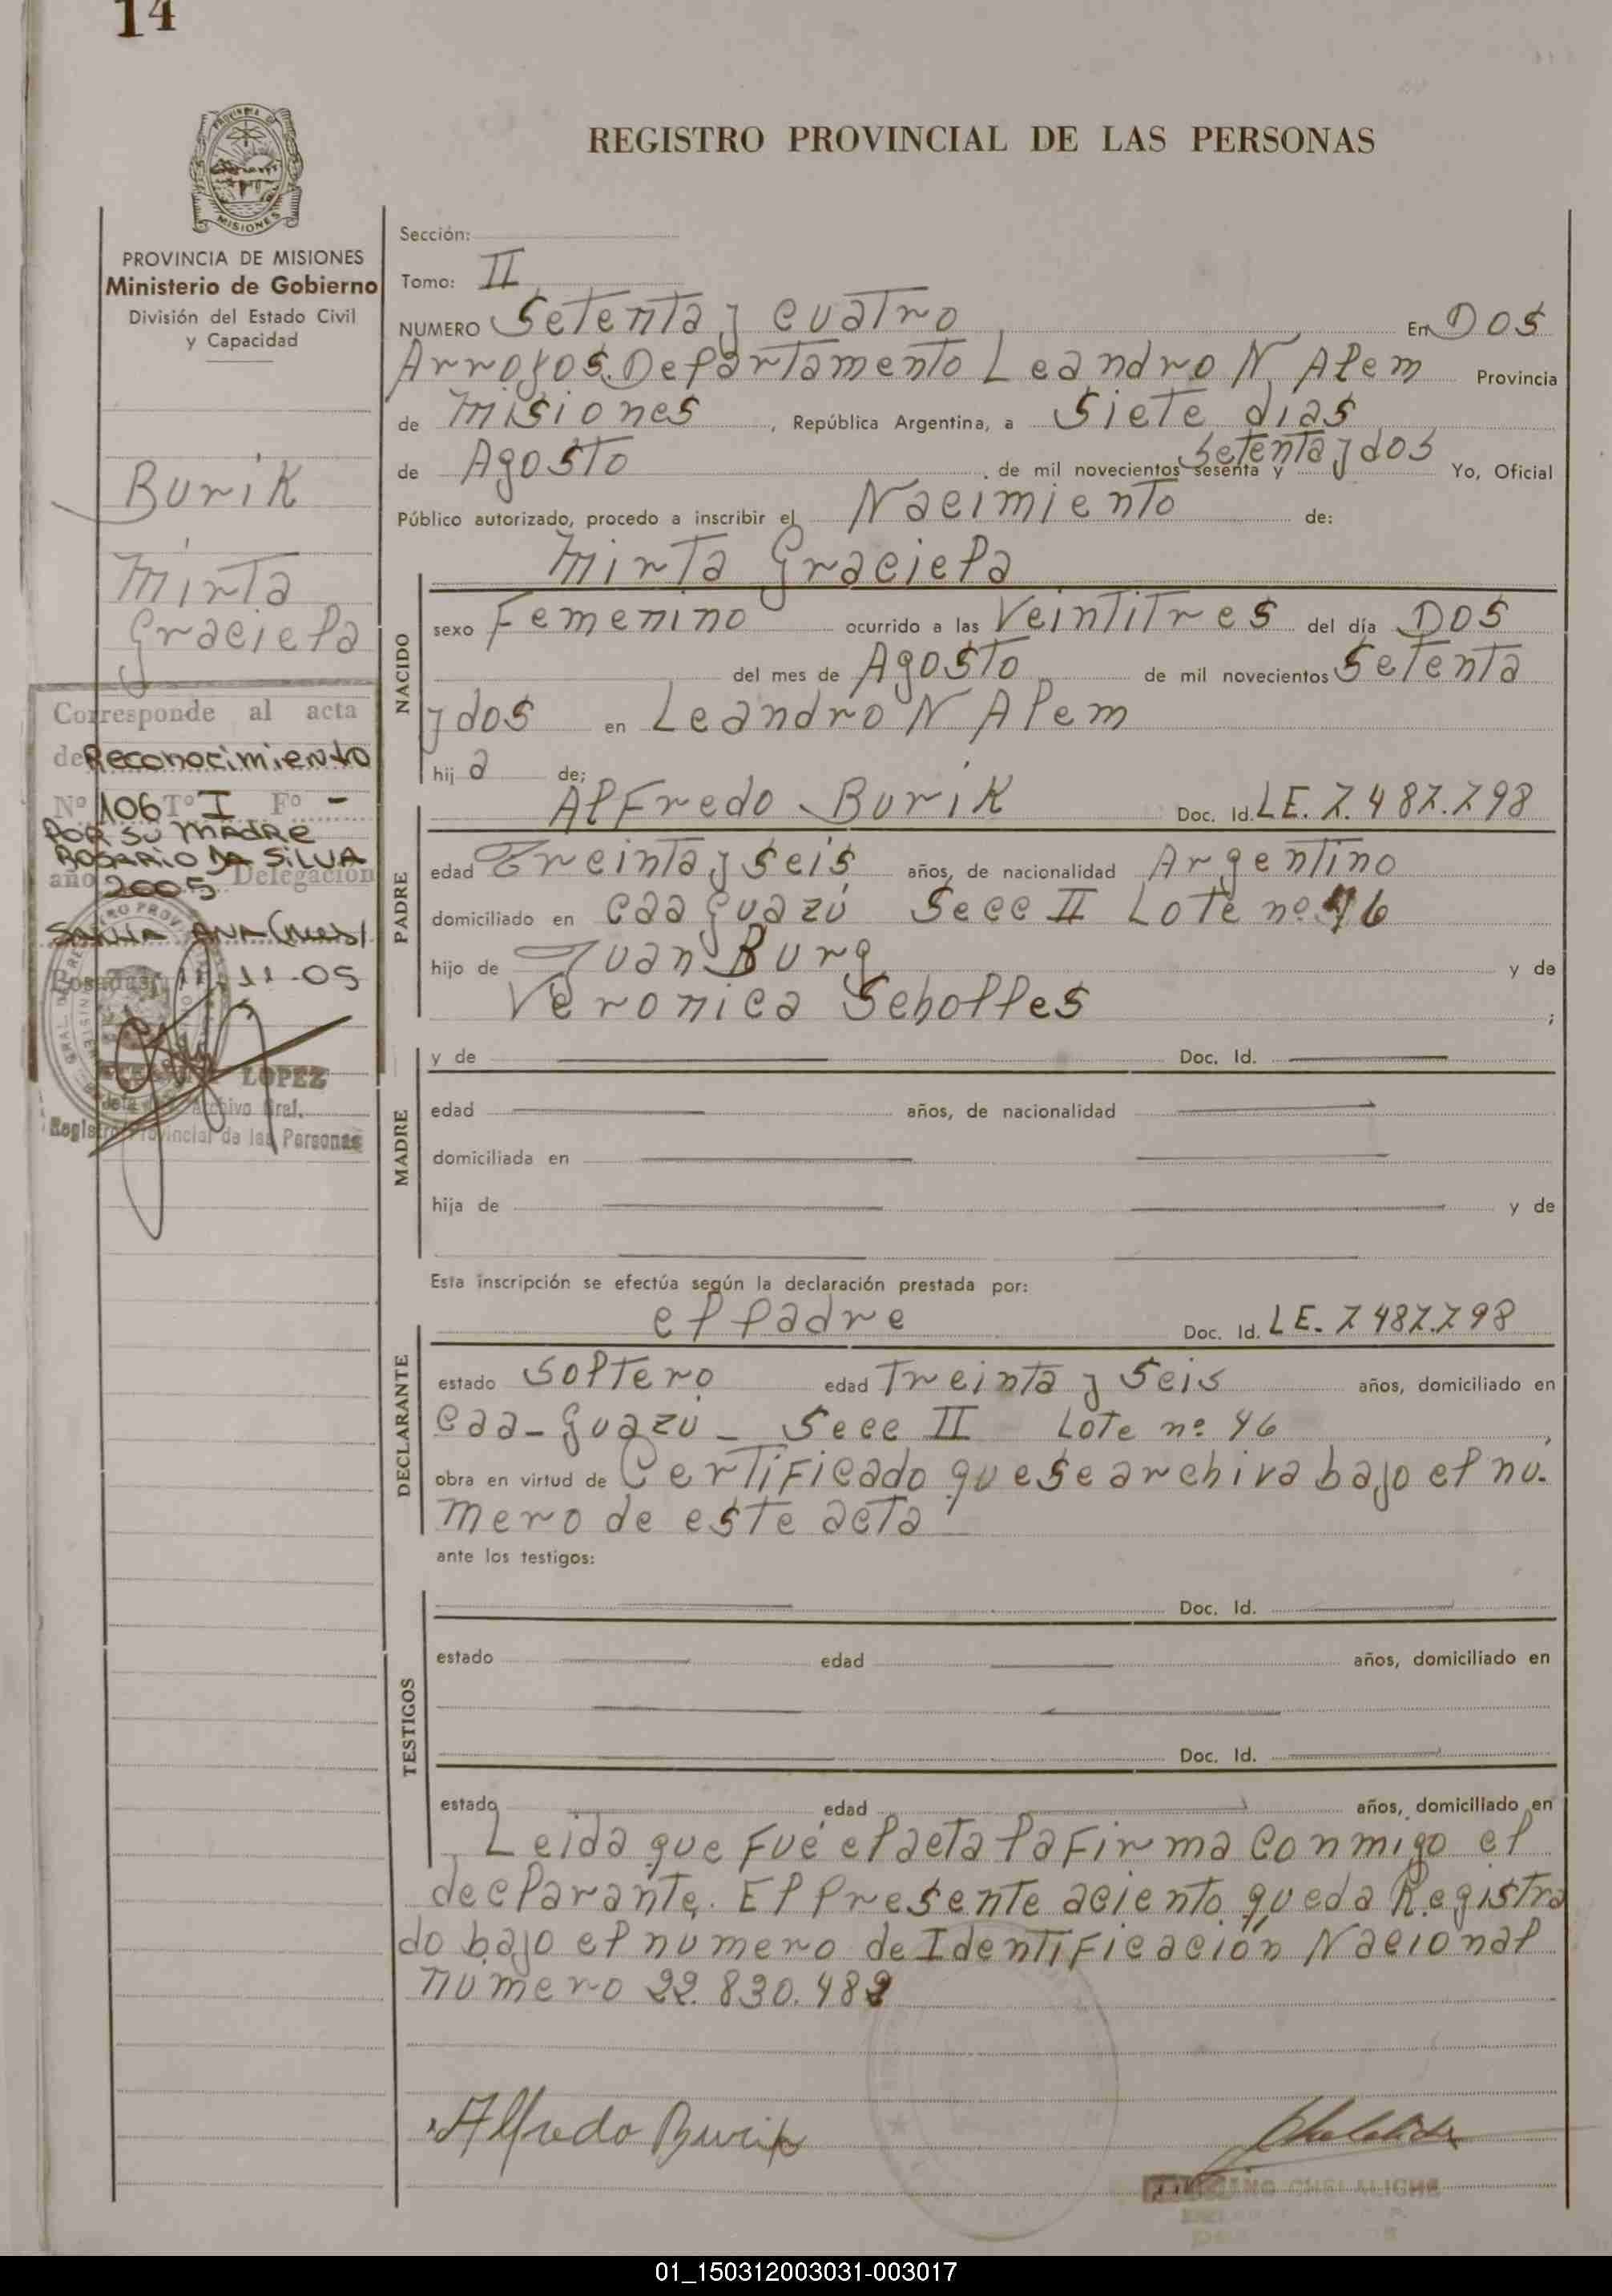 14
REGISTRO PROVINCIAL DE LAS PERSONAS
PROVINCIA DE MISIONES
Ministerio de Gobierno
División del Estado Civil
y Capacidad
Burik
Mirta
Graciela
Corresponde al acta
de Reconocimiento
Nº 106 Tº I Fº -
POR SU MADRE
ROSARIO DA SILVA
año 2005 Delegación
SANTA ANA (Mnes)
Posadas, 11-05
LOPEZ
Archivo Gral.
Registro Provincial de las Personas
Sección:
Tomo: II
NUMERO Setenta y cuatro En Dos
Arroyos. Departamento Leandro N. Alem Provincia
de Misiones, República Argentina, a Siete dias
de Agosto de mil novecientos sesenta y Setenta y dos Yo, Oficial
Público autorizado, procedo a inscribir el Nacimiento de:
Mirta Graciela
NACIDO
sexo Femenino ocurrido a las Veintitres del día Dos
del mes de Agosto de mil novecientos Setenta
y dos en Leandro N Alem
hija de;
PADRE
Alfredo Burik Doc. Id. LE. 7.487.798
edad Treinta y seis años, de nacionalidad Argentino
domiciliado en Caa Guazú Secc II Lote nº 46
hijo de Juan Burg y de
Veronica Scholles ;
MADRE
y de Doc. Id.
edad años, de nacionalidad
domiciliada en
hija de y de
Esta inscripción se efectúa según la declaración prestada por:
DECLARANTE
el Padre Doc. Id. LE. 7487.798
estado Soltero edad Treinta y Seis años, domiciliado en
Caa-Guazú - Secc II Lote nº 46 ,
obra en virtud de Certificado que se archiva bajo el nu-
mero de este acta
ante los testigos:
TESTIGOS
Doc. Id.
estado edad años, domiciliado en
Doc. Id.
estado edad años, domiciliado en
Leida que fué el acta la firma conmigo el
declarante. El Presente aciento queda Registra
do bajo el numero de Identificación Nacional
número 22.830.482
Alfredo Burik
01_150312003031-003017